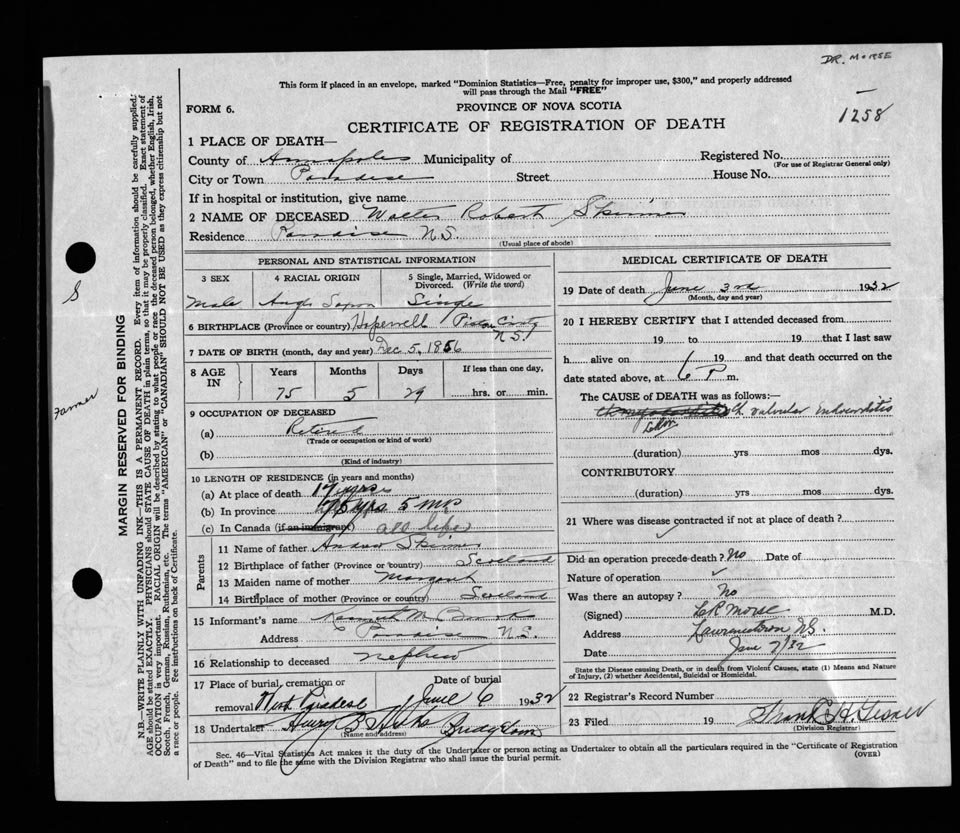 DR. MORSE
This form if placed in an envelope, marked "Dominion Statistics—Free, penalty for improper use, $300," and properly addressed
will pass through the Mail "FREE"
FORM 6.
PROVINCE OF NOVA SCOTIA
1258
CERTIFICATE OF REGISTRATION OF DEATH
1 PLACE OF DEATH—
County of Annapolis Municipality of Registered No.
(For use of Registrar General only)
City or Town Paradise Street House No.
If in hospital or institution, give name
2 NAME OF DECEASED Walter Robert Skinner
Residence Paradise N.S.
(Usual place of abode)
PERSONAL AND STATISTICAL INFORMATION
3 SEX 4 RACIAL ORIGIN 5 Single, Married, Widowed or Divorced. (Write the word)
Male Anglo Saxon Single
6 BIRTHPLACE (Province or country) Hopewell Pictou County
N.S.
7 DATE OF BIRTH (month, day and year) Dec 5, 1856
8 AGE IN Years Months Days If less than one day,
75 5 29 hrs. or min.
9 OCCUPATION OF DECEASED
(a) Retired
(Trade or occupation or kind of work)
(b)
(Kind of industry)
10 LENGTH OF RESIDENCE (in years and months)
(a) At place of death 17 years
(b) In province 75 yrs. 5 Mo
(c) In Canada (if an immigrant) all life
Parents
11 Name of father Andrew Skinner
12 Birthplace of father (Province or country) Scotland
13 Maiden name of mother Margaret
14 Birthplace of mother (Province or country) Scotland
15 Informant's name Kenneth M.
Address Paradise N.S.
16 Relationship to deceased nephew
17 Place of burial, cremation or removal West Paradise Date of burial June 6 1932
18 Undertaker Henry B Hicks Bridgetown
(Name and address)
MEDICAL CERTIFICATE OF DEATH
19 Date of death June 3rd 1932
(Month, day and year)
20 I HEREBY CERTIFY that I attended deceased from
19 to 19 that I last saw
h alive on 19 and that death occurred on the
date stated above, at 6 P m.
The CAUSE of DEATH was as follows:—
valvular Endocarditis
(duration) yrs mos dys.
CONTRIBUTORY
(duration) yrs mos dys.
21 Where was disease contracted if not at place of death?
Did an operation precede death? No Date of
Nature of operation
Was there an autopsy? No
(Signed) L R Morse M.D.
Address Lawrencetown N.S.
Date June 7/32
State the Disease causing Death, or in death from Violent Causes, state (1) Means and Nature
of Injury, (2) whether Accidental, Suicidal or Homicidal.
22 Registrar's Record Number
23 Filed 19 Frank H Gesner
(Division Registrar)
Sec. 46—Vital Statistics Act makes it the duty of the Undertaker or person acting as Undertaker to obtain all the particulars required in the "Certificate of Registration
of Death" and to file the same with the Division Registrar who shall issue the burial permit.
(OVER)
S
Farmer
MARGIN RESERVED FOR BINDING
N.B.—WRITE PLAINLY WITH UNFADING INK—THIS IS A PERMANENT RECORD. Every item of information should be carefully supplied;
AGE should be stated EXACTLY. PHYSICIANS should STATE CAUSE OF DEATH in plain terms, so that it may be properly classified. Exact statement of
OCCUPATION is very important. RACIAL ORIGIN will be described by stating to what people or race the deceased person belonged, whether English, Irish,
Scotch, French, German, Russian, Ruthenian, etc. The terms "AMERICAN" or "CANADIAN" SHOULD NOT BE USED as they express citizenship but not
a race or people. See instructions on back of Certificate.